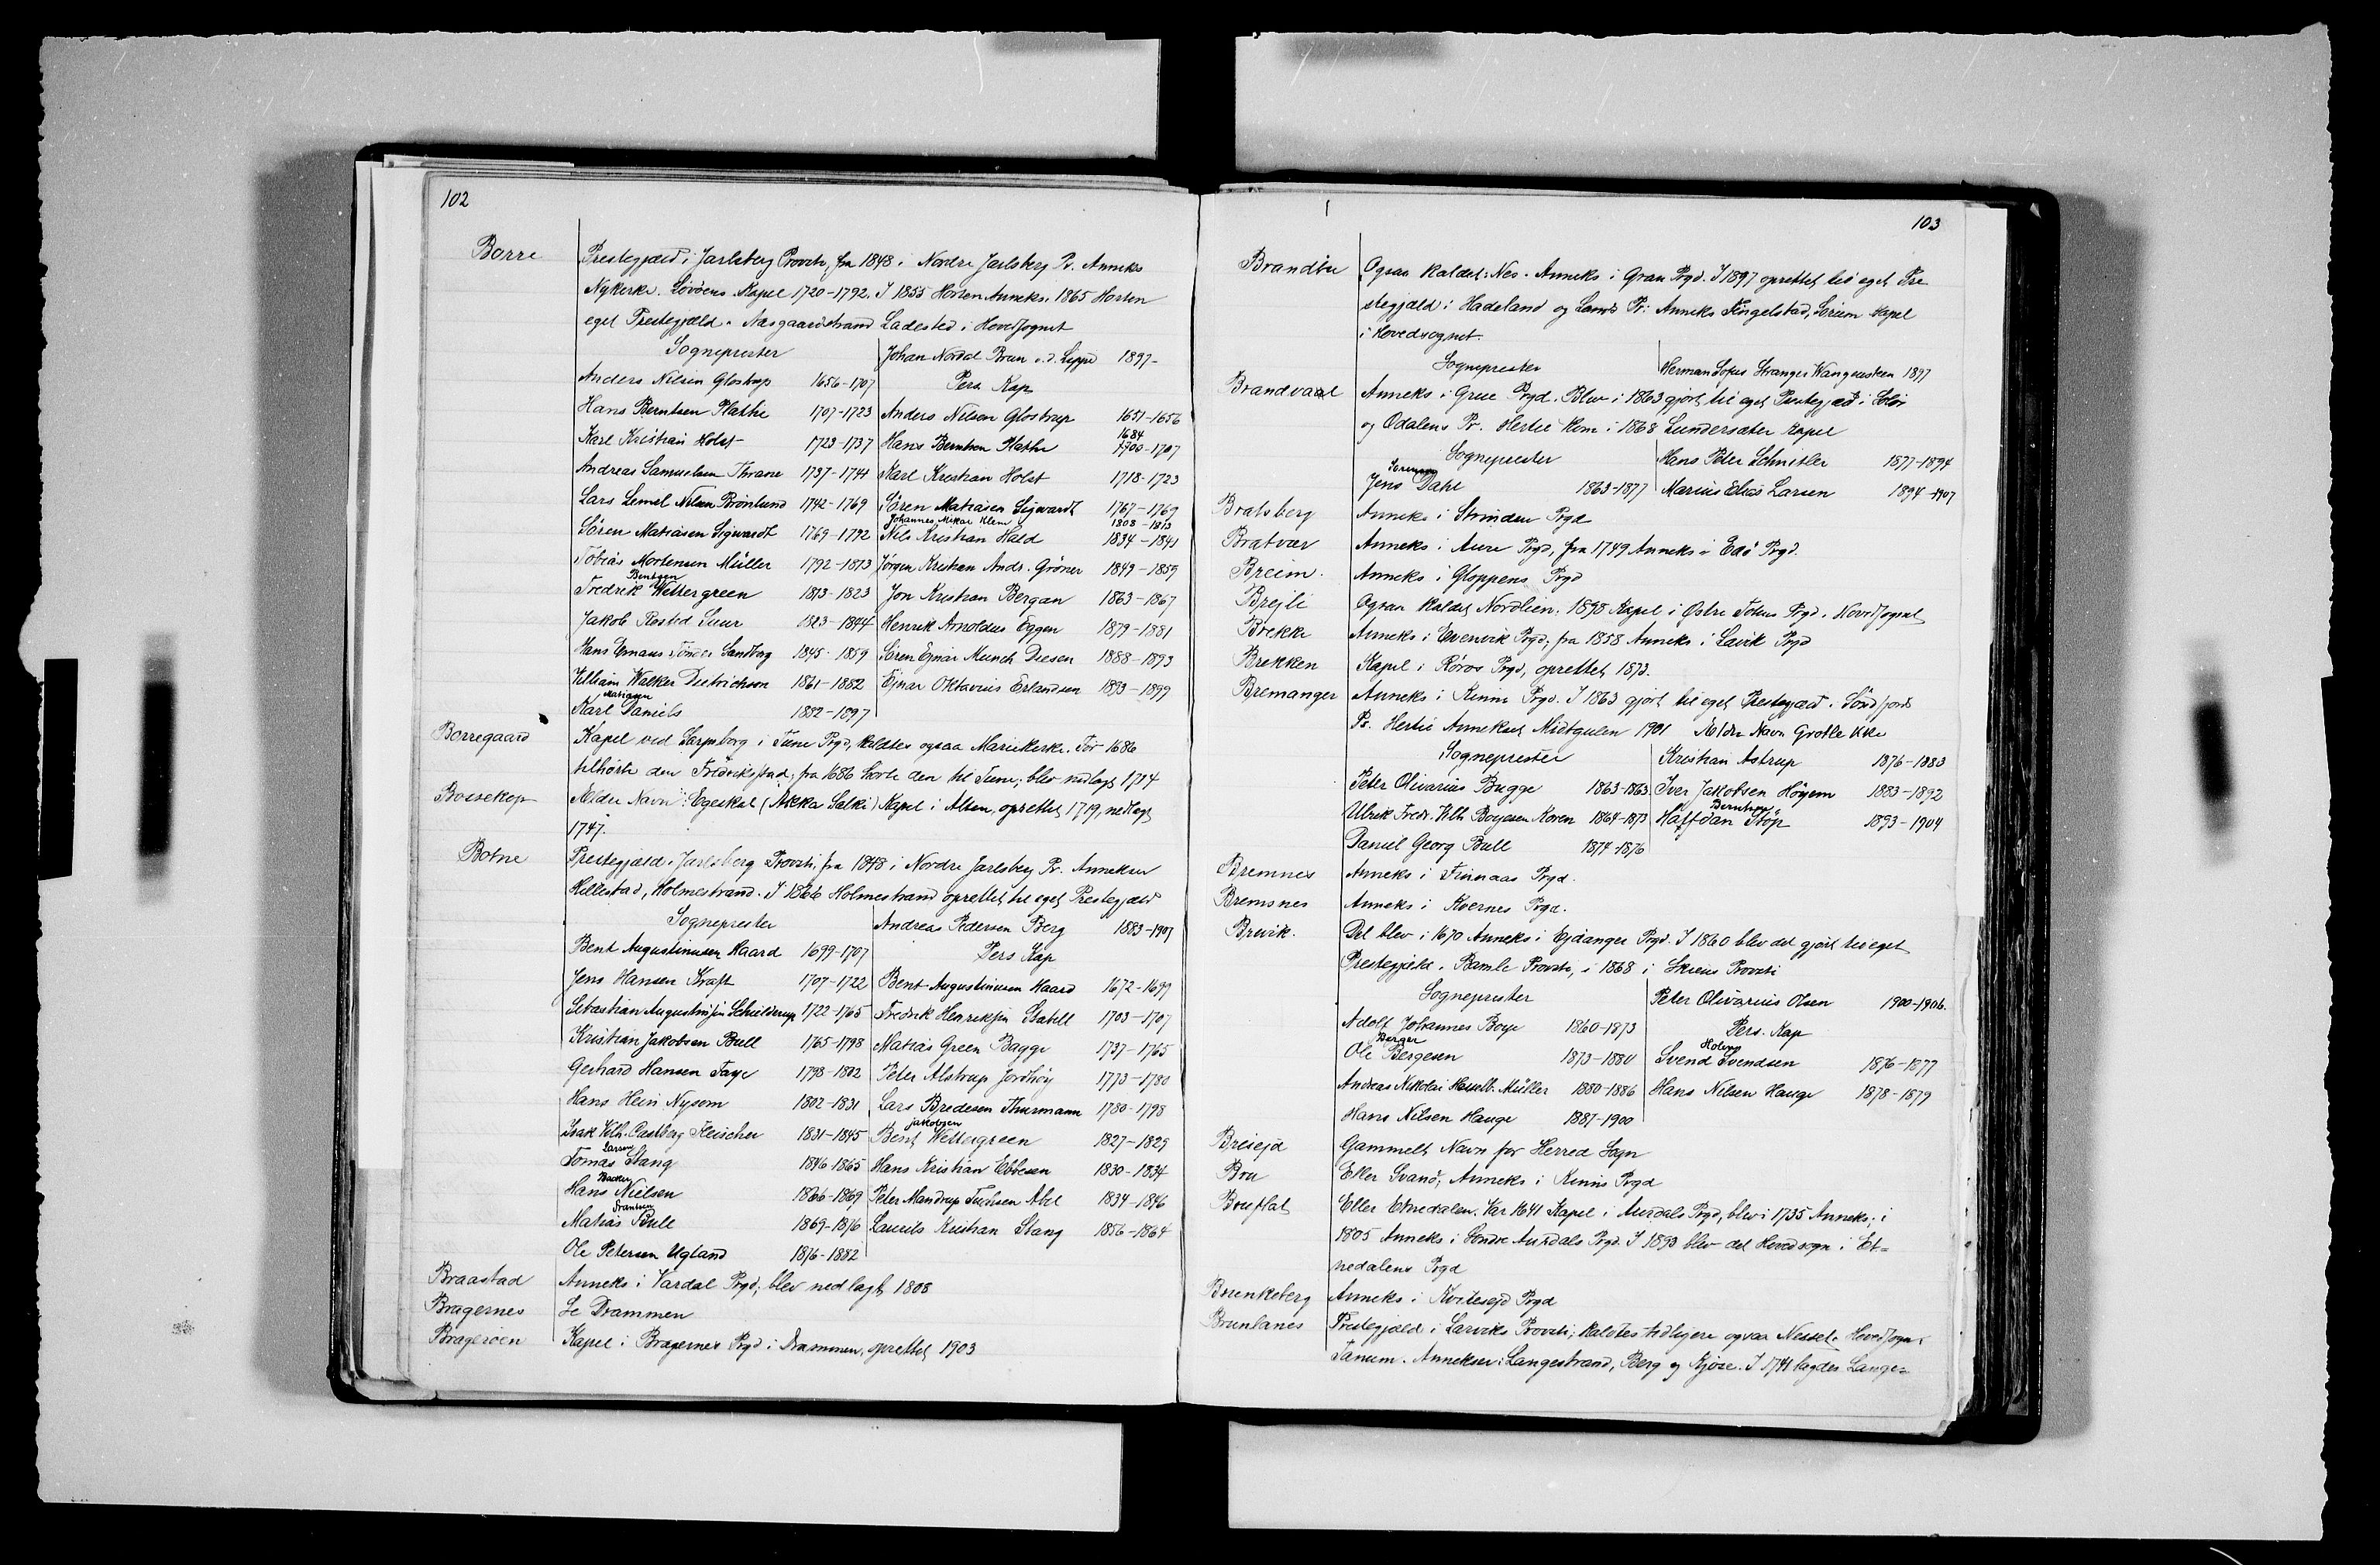 102
Borre Prestegjæld i Jarlsberg Provsti, fra 1848 i Nordre Jarlsberg Pr. Anneks
Nykerke. Løvøens Kapel 1720-1792. I 1855 Horten Anneks. 1865 Horten
eget Prestegjæld. Aasgaardstrand Ladested i HovedSognet
Sogneprester
Anders Nilsen Glostrup 1656-1707
Hans Berntsen Plathe 1707-1723
Karl Kristian Holst 1723-1737
Andreas Samuelsen Thrane 1737-1741
Lars Lemel Nilsen Brönlund 1742-1769
Sören Matiasen Sigwardt 1769-1792
Tobias Mortensen Müller 1792-1813
Fredrik Bentsen Wettergreen 1813-1823
Jakob Rosted Suur 1823-1844
Hans Emaus Tönder Sandberg 1845-1859
William Walker Dietrichson 1861-1882
Karl Matiasen Daniels 1882-1897
Johan Nordal Brun v.d. Lippe 1897-
Pers Kap
Anders Nilsen Glostrup 1651-1656
Hans Berntsen Plathe 1684 1700-1707
Karl Kristian Holst 1718-1723
Sören Matiasen Sigwardt 1767-1769
Johannes Mikal Klem 1808-1813
Nils Kristian Hald 1834-1841
Jörgen Kristian Andr. Gröner 1849-1859
Jon Kristian Bergan 1863-1867
Henrik Arnoldus Eggen 1879-1881
Sören Ejnar Munch Diesen 1888-1893
Ejnar Oktavius Erlandsen 1893-1899
Borregaard Kapel ved Sarpsborg i Tune Pgd, kaldtes ogsaa Mariekerke. För 1686
tilhörte den Fredrikstad; fra 1686 hörte den til Tune; blev nedlagt 1714
Bossekop Ældre Navn: Egeskal (Akka Salki) Kapel i Alten, oprettet 1719, nedlagt
1747.
Botne Prestegjæld i Jarlsberg Provsti, fra 1848 i Nordre Jarlsberg Pr. Annekser
Hillestad, Holmestrand. I 1866 Holmestrand oprettet til eget Prestegjæld
Sogneprester
Bent Augustinusen Maard 1699-1707
Jens Hansen Kraft 1707-1722
Sebastian Augustinsen Schielderup 1722-1765
Kristian Jakobsen Bull 1765-1798
Gerhard Hansen Faye 1798-1802
Hans Hein Nysom 1802-1831
Isak Vilh. Castberg Fleischer 1831-1845
Tomas Larsen Stang 1846-1865
Hans Backer Nielsen 1866-1869
Matias Frantsen Bull 1869-1876
Ole Petersen Ugland 1876-1882
Andreas Pedersen Berg 1883-1907
Pers Kap
Bent Augustinusen Maard 1672-1699
Fredrik Henriksen Isabell 1703-1707
Matias Green Bagge 1737-1765
Peter Alstrup Jordhöy 1773-1780
Lars Bredesen Thurmann 1780-1798
Bent Jakobsen Wettergreen 1827-1829
Hans Kristian Ebbesen 1830-1834
Peter Mandrup Tuchsen Abel 1834-1846
Laurits Kristian Stang 1856-1864
Braastad Anneks i Vardal Pgd; blev nedlagt 1808
Bragernes Se Drammen
Bragerøen Kapel i Bragernes Pgd i Drammen, oprettet 1903
103
Brandbu Ogsaa kaldet: Nes. Anneks i Gran Pgd. I 1897 oprettet til eget Pre
stegjæld i Hadeland og Lands Pr: Anneks Tingelstad, Sörum Kapel
i Hovedsognet.
Sogneprester Herman Sofus Stranger Wangensteen 1897
Brandvaal Anneks i Grue Pgd. Blev i 1863 gjort til eget Prestegjæld i Solör
og Odalens Pr. Hertil kom i 1868 Lundersæter Kapel
Sogneprester
Jens Sörensen Dahl 1863-1877
Hans Peter Schnitler 1877-1894
Marius Elias Larsen 1894-1907
Bratsberg Anneks i Strinden Pgd
Bratvær Anneks i Aure Pgd, fra 1749 Anneks i Edö Pgd.
Breim. Anneks i Gloppens Pgd
Brejli Ogsaa kaldet Nordlien. 1898 Kapel i Østre Totens Pgd. HovedSognet
Brekke Anneks i Evenvik Pgd; fra 1858 Anneks i Lavik Pgd
Brekken Kapel i Röros Pgd, oprettet 1873.
Bremanger Anneks i Kinns Pgd. I 1863 gjort til eget Prestegjæld i Söndfjords
Pr. Hertil Annekset Midtgulen 1901 Ældre Navn Grotle Kke
Sogneprester
Peter Olivarius Bugge 1863-1863
Ulrik Fredr. Vilh Boyesen Koren 1864-1873
Daniel Georg Bull 1874-1876
Kristian Astrup 1876-1883
Iver Jakobsen Höyem 1883-1892
Halfdan Bernhard Stöp 1893-1904
Bremnes Anneks i Finnaas Pgd.
Bremsnes Anneks i Kvernes Pgd.
Brevik. Det blev i 1670 Anneks i Ejdanger Pgd. I 1860 blev det gjort til eget
Prestegjæld i Bamle Provsti, i 1868 i Skiens Provsti
Sogneprester
Adolf Johannes Boye 1860-1873
Ole Berger Bergesen 1873-1880
Andreas Nikolai Hesselb. Müller 1880-1886
Hans Nilsen Hauge 1887-1900
Peter Olivarius Olsen 1900-1906.
Pers. Kap
Svend Holm Svendsen 1876-1877
Hans Nilsen Hauge 1878-1879
Breiejd Gammelt Navn for Herred Sogn
Bru Eller Svanö; Anneks i Kinns Pgd
Bruflat Eller Etnedalen. Var 1641 Kapel i Aurdals Pgd, blev i 1735 Anneks; i
1805 Anneks i Söndre Aurdals Pgd. I 1893 blev det Hovedsogn i Et-
nedalens Pgd
Brunkeberg Anneks i Kvitesejd Pgd
Brunlanes Prestegjæld i Larviks Provsti; kaldtes tidligere ogsaa Nesset. HovedSogn:
Tanum. Annekser: Langestrand, Berg og Kjose. I 1741 lagdes Lange-